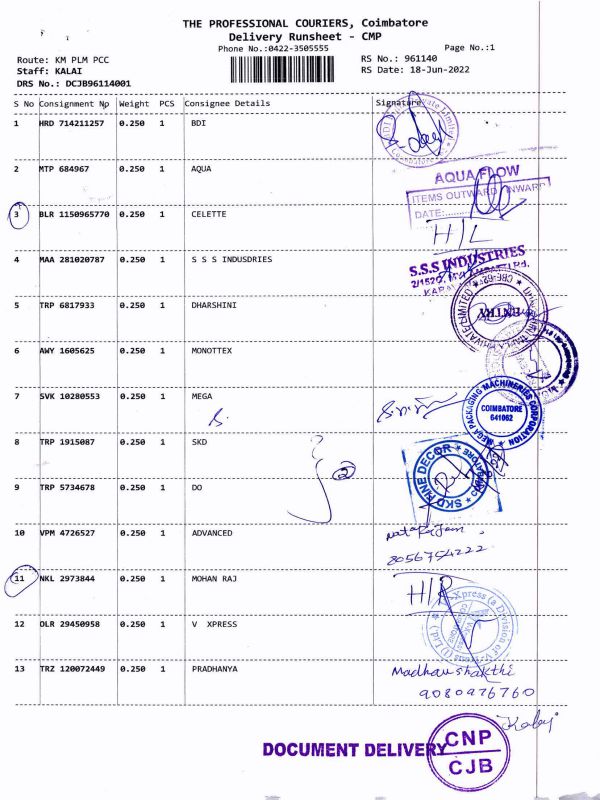 THE PROFESSIONAL COURIERS, Coimbatore
Delivery Runsheet - CMP
Phone No.:0422-3505555
Page No.:1
Route: KM PLM PCC
RS No.: 961140
Staff: KALAI
RS Date: 18-Jun-2022
DRS No.: DCJB96114001
S No Consignment Np Weight PCS Consignee Details Signature
1 HRD 714211257 0.250 1 BDI
2 MTP 684967 0.250 1 AQUA
AQUA FLOW
ITEMS OUTWARD INWARD
DATE:
3 BLR 1150965770 0.250 1 CELETTE H/L
4 MAA 281020787 0.250 1 S S S INDUSDRIES
S.S.S INDUSTRIES
5 TRP 6817933 0.250 1 DHARSHINI
6 AWY 1605625 0.250 1 MONOTTEX
7 SVK 10280553 0.250 1 MEGA
MEGA PACKAGING MACHINERIES CORPORATION
COIMBATORE
641062
8 TRP 1915087 0.250 1 SKD
SKD FINE DECOR
2
9 TRP 5734678 0.250 1 DO
10 VPM 4726527 0.250 1 ADVANCED
8056754222
11 NKL 2973844 0.250 1 MOHAN RAJ H/R
12 DLR 29450958 0.250 1 V XPRESS
Xpress (a Division of V-
13 TRZ 120072449 1 0.250 PRADHANYA
Madhav shakthi
9080976760
Kalai
DOCUMENT DELIVERY
CNP
CJB